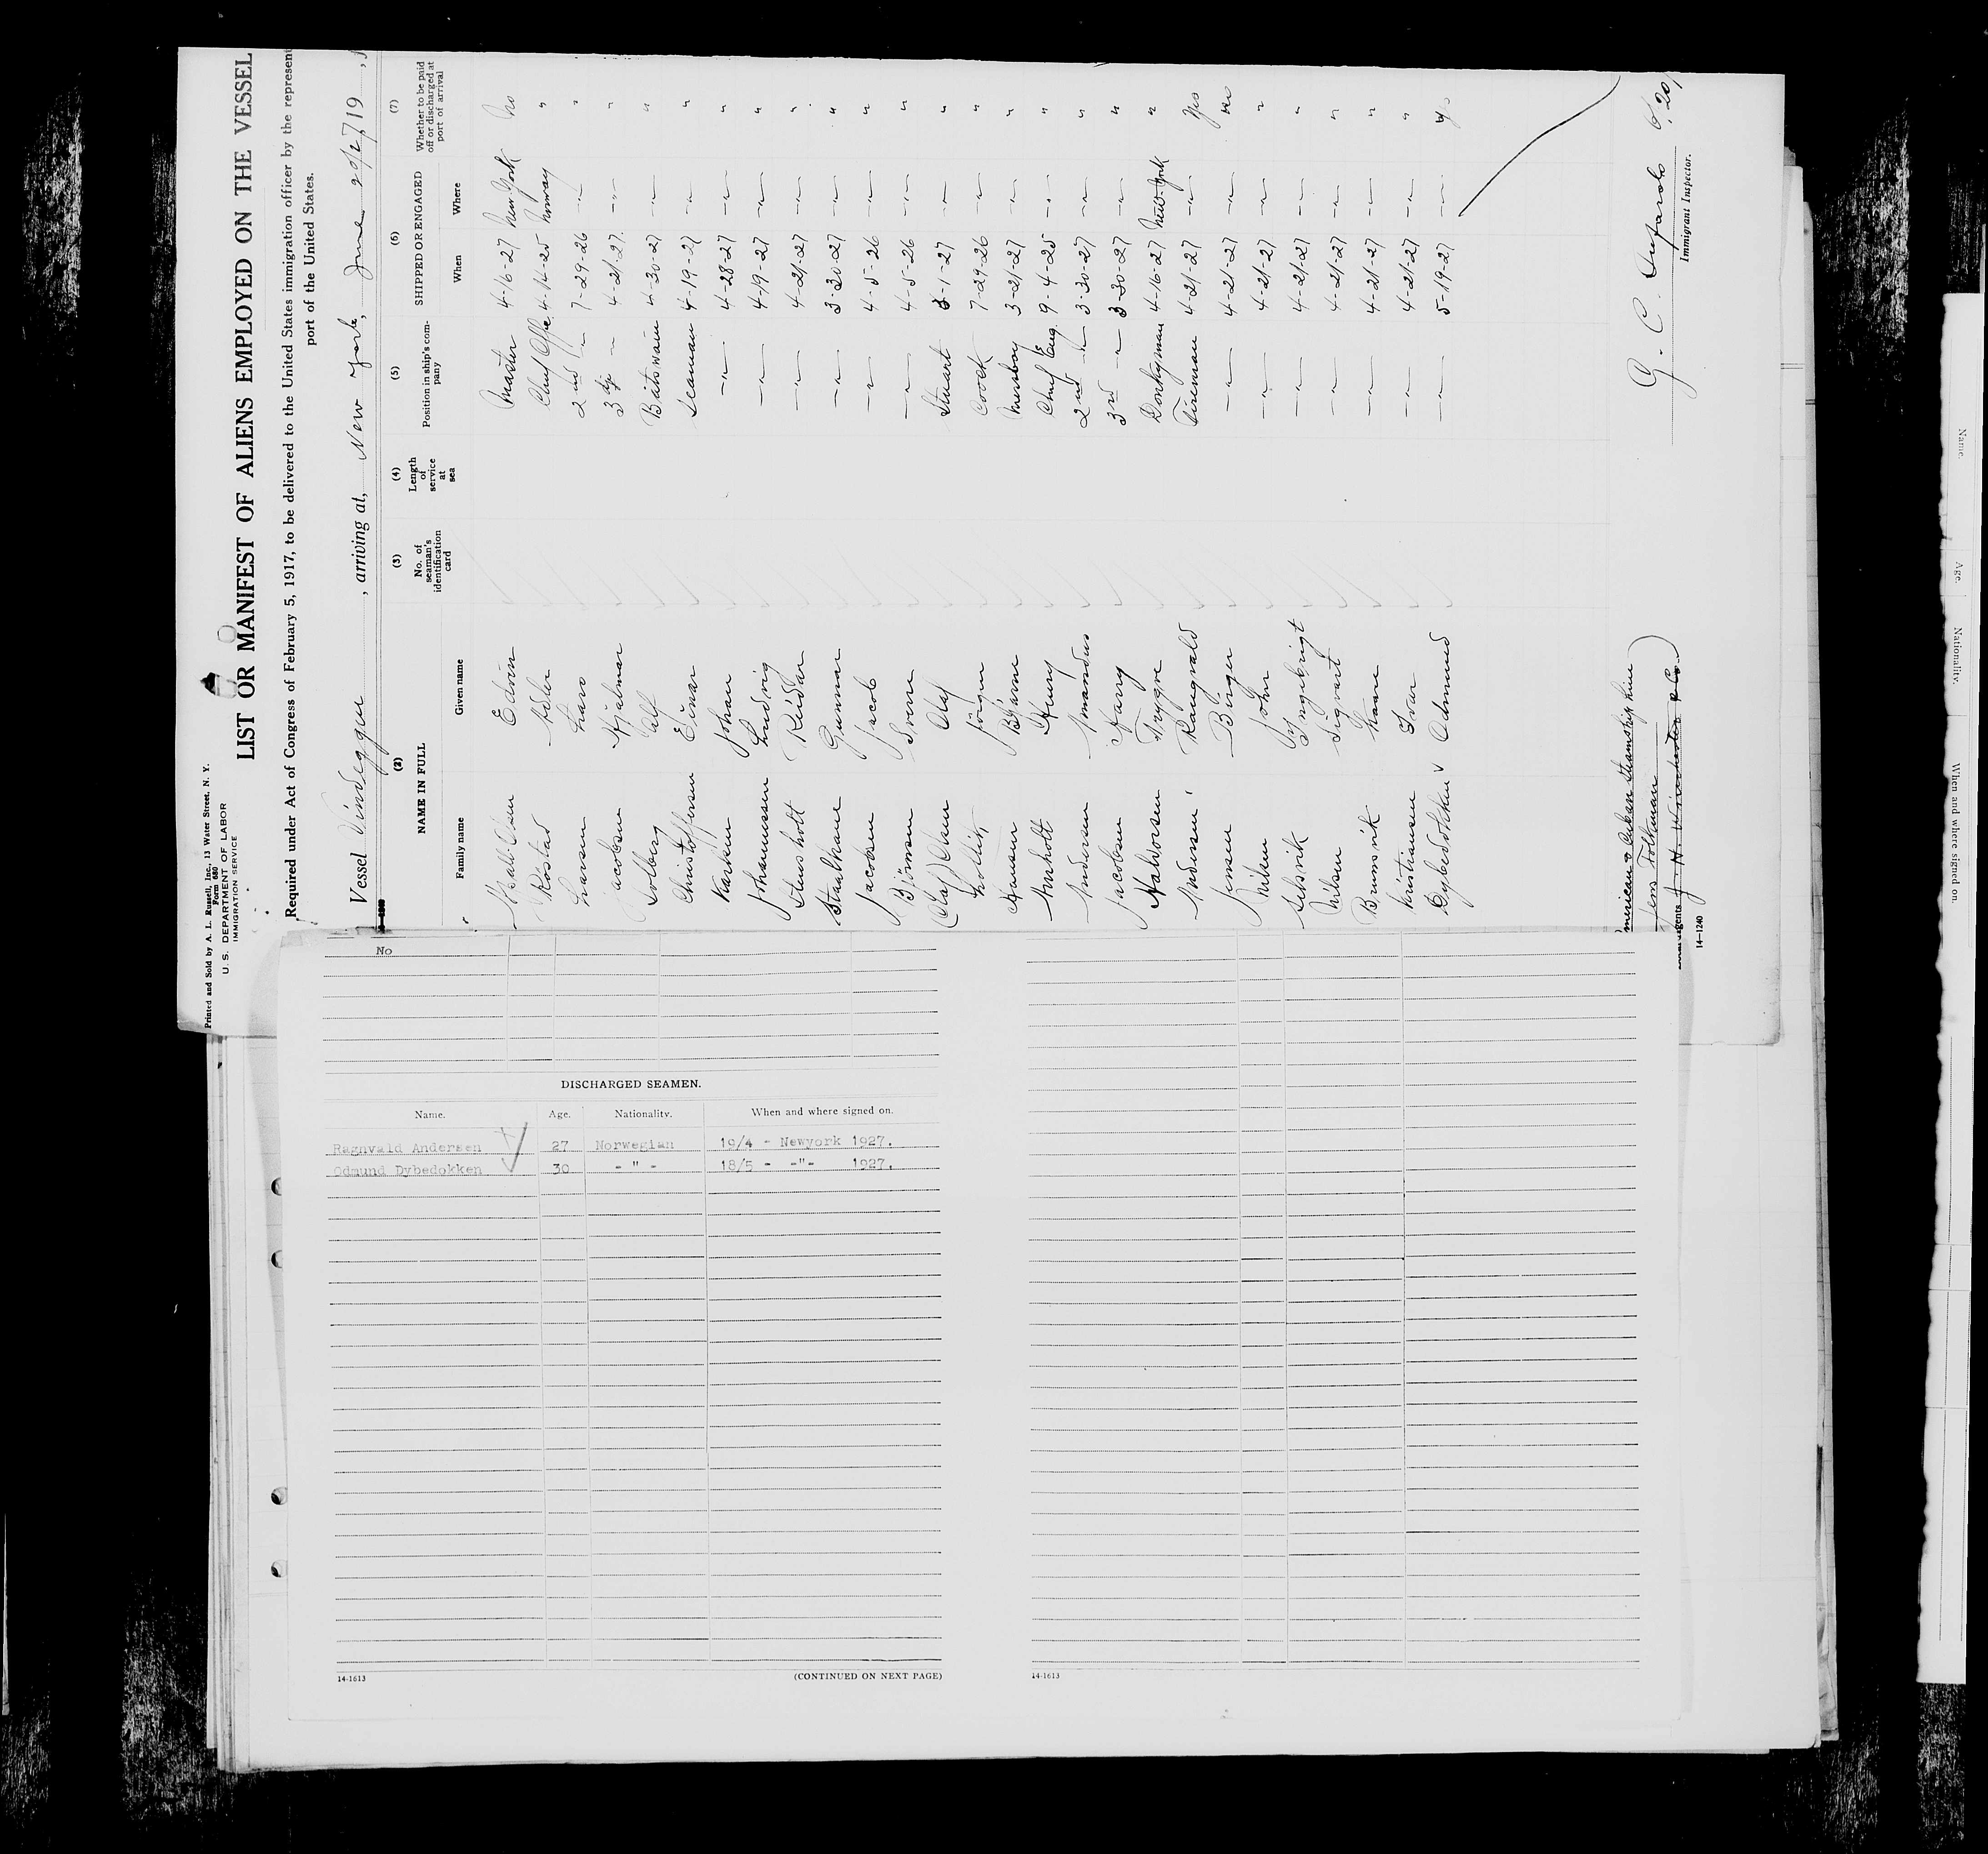 Printed and Sold by A. L. Russell, Inc., 13 Water Street, N. Y.
Form 680
U. S. DEPARTMENT OF LABOR
IMMIGRATION SERVICE
LIST OR MANIFEST OF ALIENS EMPLOYED ON THE VESSEL
Required under Act of Congress of February 5, 1917, to be delivered to the United States immigration officer by the represent
port of the United States.
Vessel Vindeggen, arriving at, New York, June 2nd, 19
(2) (3) (4) (5) (6) (7)
NAME IN FULL No. of seaman's identification card Length of service at sea Position in ship's company SHIPPED OR ENGAGED Whether to be paid off or discharged at port of arrival
Family name Given name When Where
Edvin Master 4-16-27 New York No
Rostad Adler Chief Offic. 4-14-25 Norway "
Larsen Lars 2nd -"- 7-29-26 -"- "
Jacobsen Hjalmar 3rd " 4-21-27. -"- "
Solberg Alf Båtswain 4-30-27 -"- "
Christoffersen Einar Seaman 4-19-27 -"- "
Karlsen Johan -"- 4-28-27 -"- "
Johannessen Ludvig -"- 4-19-27 -"- "
Stensholt Reidar -"- 4-21-27 -"- "
Staalhane Gunnar -"- 3-30-27 -"- "
Jacobsen Jacob -"- 4-5-26 -"- "
Björnsen Sverre -"- 4-5-26 -"- "
Olsen Olaf Stuart 3-1-27 -"- "
Jörgen Coock 7-29-26 -"- "
Hansen Bjarne Messboy 3-21-27 -"- "
Amholt Henry Chief Eng. 9-4-25 -"- "
Andersen Amandus 2nd -"- 3-30-27 -"- "
Jacobsen Harry 3rd -"- 3-30-27 -"- "
Halvorsen Trygve Donkyman 4-16-27 New-York "
Andersen Rangvald Fireman 4-21-27 -"- Yes
Jensen Birger -"- 4-21-27 -"- No
Nilsen John -"- 4-21-27 -"- "
Selsvik Ingebrigt -"- 4-21-27 -"- "
Nilsen Sigvart -"- 4-21-27 -"- "
Brunsvik -"- 4-21-27 -"- "
Kristiansen Ivar -"- 4-21-27 -"- "
Dybedokken Odmund -"- 5-19-27 -"- Yes
American & Cuban Steamship Line
Jens Folkman
J. H. Winchester & Co.
Agents
14—1240
Immigrant Inspector.
No
DISCHARGED SEAMEN.
Name. Age. Nationality. When and where signed on.
Ragnvald Andersen 27 Norwegian 19/4 - Newyork 1927.
Odmund Dybedokken 30 - " - 18/5 - -"- 1927.
14-1613 (CONTINUED ON NEXT PAGE)
14-1613
Name. Age. Nationality. When and where signed on.